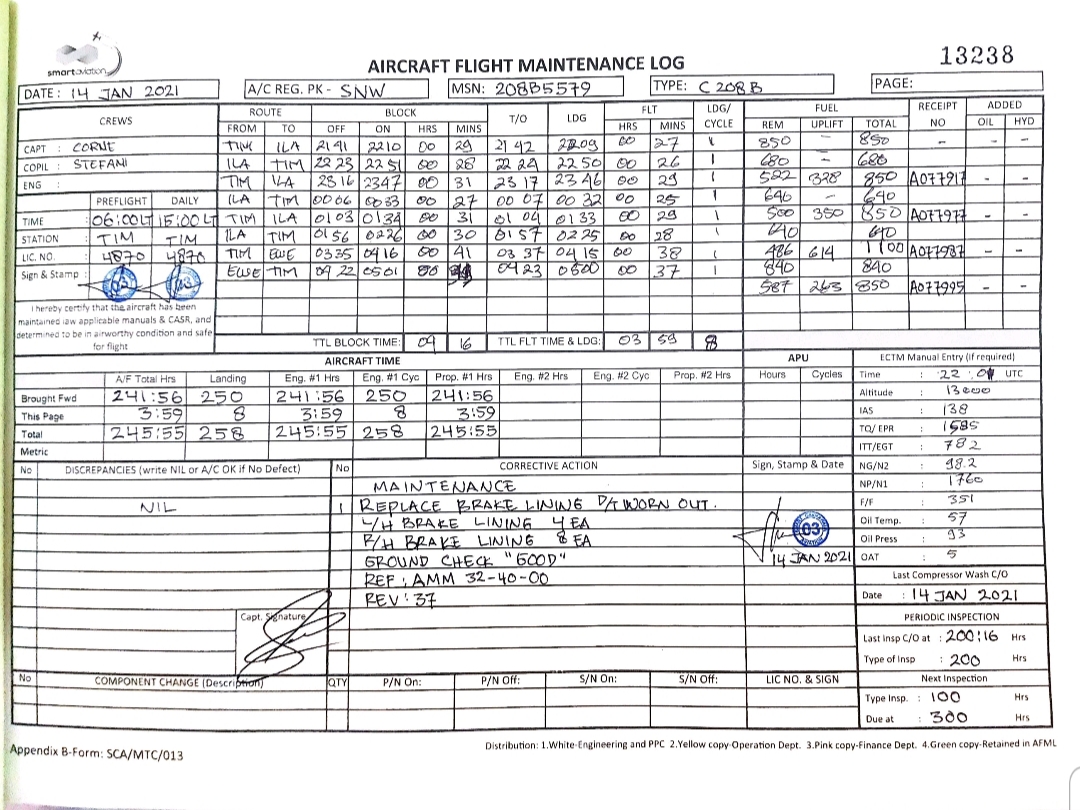 smartaviation
13238
AIRCRAFT FLIGHT MAINTENANCE LOG
DATE: 14 JAN 2021 A/C REG. PK - SNW MSN: 208B5579 TYPE: C 208 B PAGE:
CREWS ROUTE BLOCK T/O LDG FLT LDG/ CYCLE FUEL RECEIPT NO ADDED
FROM TO OFF ON HRS MINS HRS MINS REM UPLIFT TOTAL OIL HYD
CAPT : CORNE TIM ILA 2141 2210 00 29 2142 2209 00 27 1 850 - 850 - - -
COPIL : STEFANI ILA TIM 2223 2251 00 28 2224 2250 00 26 1 680 - 680
ENG : TIM ILA 2316 2347 00 31 2317 2346 00 29 1 522 328 850 A077917 - -
PREFLIGHT DAILY ILA TIM 0006 0033 00 27 00 07 00 32 00 25 1 640 - 640
TIME 06:00LT 15:00LT TIM ILA 0103 0134 00 31 01 04 0133 00 29 1 500 350 850 A077977 - -
STATION : TIM TIM ILA TIM 0156 0226 00 30 0157 0225 00 28 1 640 640
LIC. NO. : 4870 4870 TIM EWE 0335 0416 00 41 03 37 04 15 00 38 1 486 614 1100 A077987 - -
Sign & Stamp : 03 03 EWE TIM 04 22 0501 00 0423 0500 00 37 1 840 840
587 263 850 A077995 - -
I hereby certify that the aircraft has been
maintained iaw applicable manuals & CASR, and
determined to be in airworthy condition and safe
for flight
TTL BLOCK TIME: 04 16 TTL FLT TIME & LDG: 03 59 8
AIRCRAFT TIME APU ECTM Manual Entry (if required)
A/F Total Hrs Landing Eng. #1 Hrs Eng. #1 Cyc Prop. #1 Hrs Eng. #2 Hrs Eng. #2 Cyc Prop. #2 Hrs Hours Cycles Time : 22 : 01 UTC
Brought Fwd 241:56 250 241:56 250 241:56 Altitude : 13000
This Page 3:59 8 3:59 8 3:59 IAS : 138
Total 245:55 258 245:55 258 245:55 TQ/ EPR : 1585
Metric ITT/EGT : 782
No DISCREPANCIES (write NIL or A/C OK if No Defect) No CORRECTIVE ACTION Sign, Stamp & Date NG/N2 : 98.2
MAINTENANCE NP/N1 : 1760
NIL 1 REPLACE BRAKE LINING D/T WORN OUT. F/F : 351
L/H BRAKE LINING 4 EA 03 Oil Temp. : 57
R/H BRAKE LINING 8 EA Oil Press : 93
GROUND CHECK "GOOD" 14 JAN 2021 OAT : 5
REF : AMM 32-40-00 Last Compressor Wash C/O
REV : 37 Date : 14 JAN 2021
Capt. Signature PERIODIC INSPECTION
Last Insp C/O at : 200:16 Hrs
Type of Insp : 200 Hrs
No COMPONENT CHANGE (Description) QTY P/N On: P/N Off: S/N On: S/N Off: LIC NO. & SIGN Next Inspection
Type Insp. : 100 Hrs
Due at : 300 Hrs
Appendix B-Form: SCA/MTC/013 Distribution: 1.White-Engineering and PPC 2.Yellow copy-Operation Dept. 3.Pink copy-Finance Dept. 4.Green copy-Retained in AFML